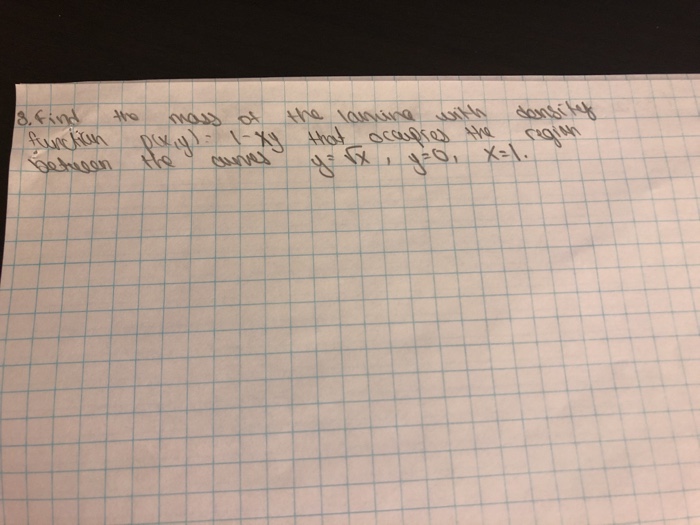 8. Find the mass of the lamina with density
function p(x,y) = 1-xy that occupies the region
between the curves y=√x, y=0, x=1.